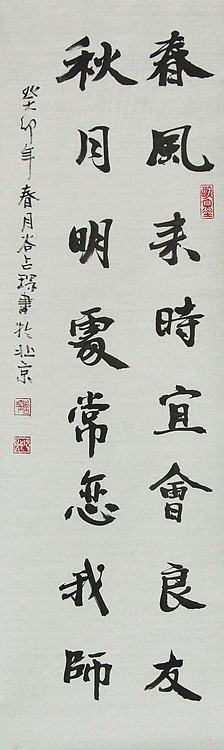 春風来時宜會良友
秋月明處常恋我師
癸卯年春月谷占琛書於北京